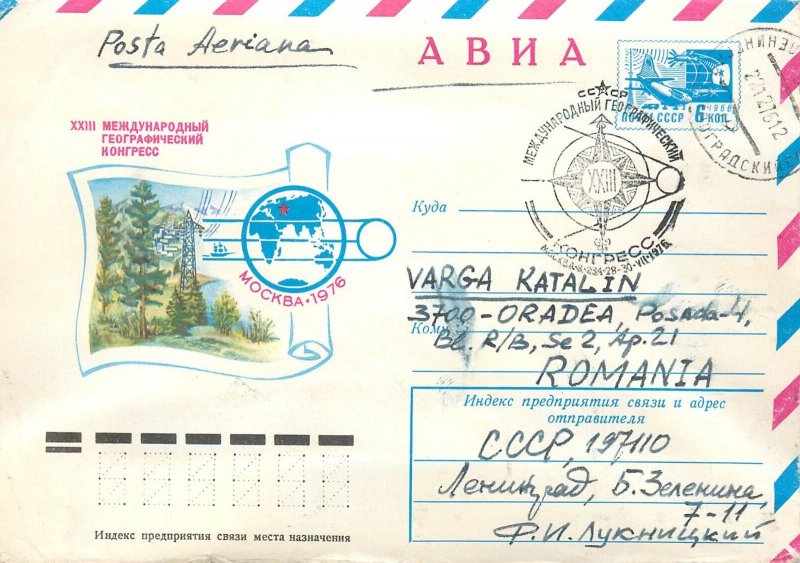 Posta Aeriana
АВИА
1966
ПОЧТА СССР 6 КОП.
XXIII МЕЖДУНАРОДНЫЙ
ГЕОГРАФИЧЕСКИЙ
КОНГРЕСС
МОСКВА·1976
СССР
МЕЖДУНАРОДНЫЙ ГЕОГРАФИЧЕСКИЙ
XXIII
КОНГРЕСС
Куда
VARGA KATALIN
3700-ORADEA, Posada-4,
Кому
Bl. R/B, Sc 2, Ap. 21
ROMANIA
Индекс предприятия связи и адрес
отправителя
СССР, 197110
Ленинград, Б. Зеленина,
7-11
Ф.И. Лукницкий
Индекс предприятия связи места назначения